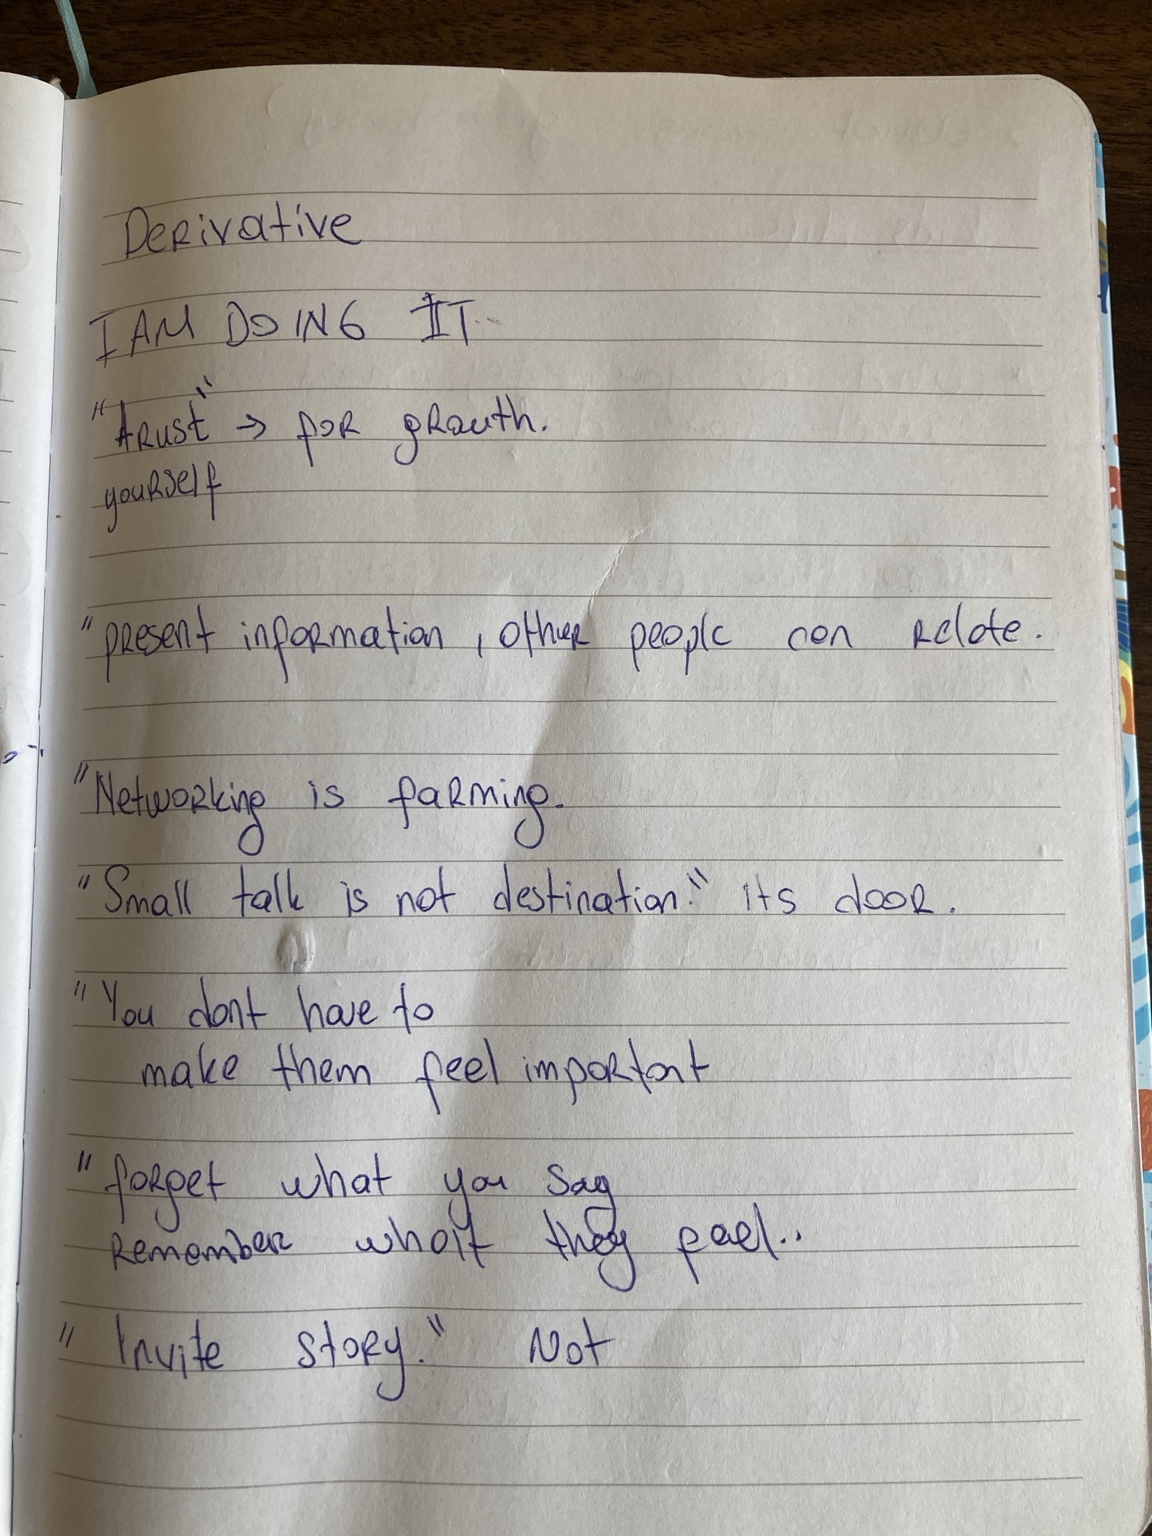 Derivative
I AM DOING IT..
"Trust" → for grouth.
yourself
"present information, other people can relate.
"Networking is farming.
"Small talk is not destination." its door.
"You dont have to
make them feel important
"forget what you say
Remember whait they fael..
"Invite story." Not